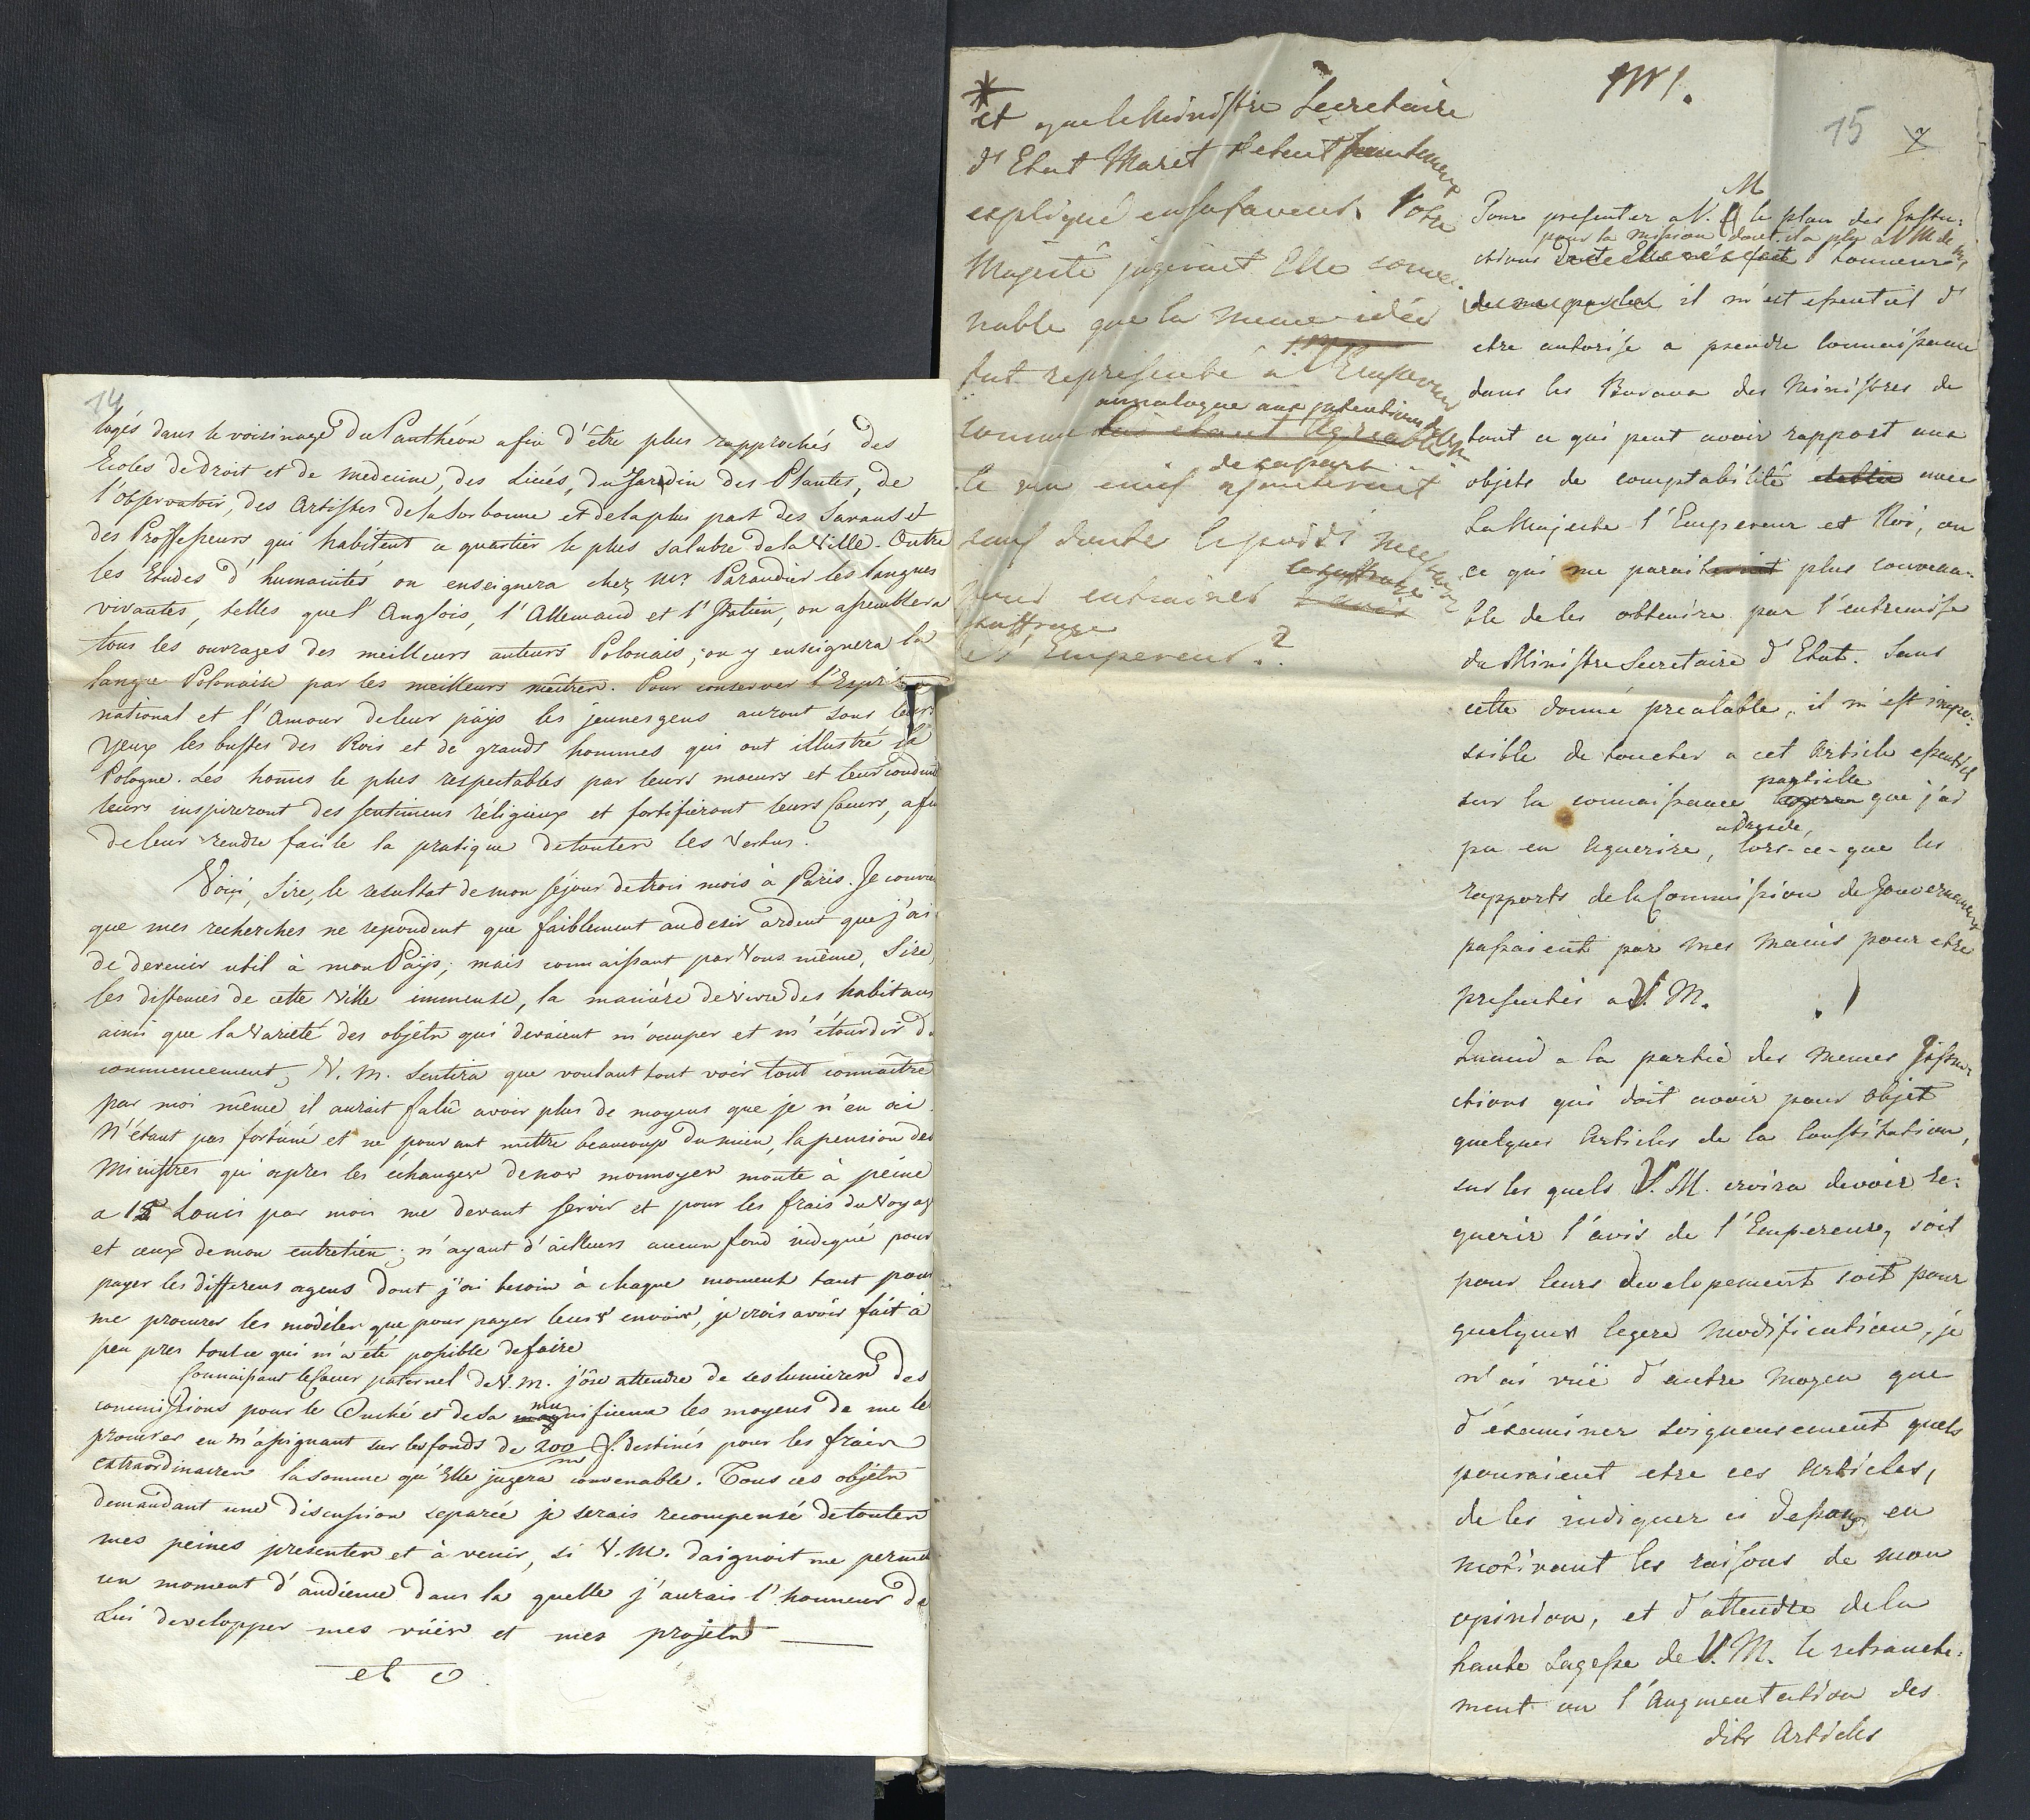 14
logés dans le voisinage du Panthéon afin d'être plus rapprochés des
Ecoles de droit et de medecine, des Liciés, du Jardin des Plantes, de
l'observatoir, des Artistes de la Sorbonne et de la plus part des Savans et
des Proffesseurs qui habitent ce quartier le plus salubre de la Ville. Outre
les Etudes d'humanités on enseignera chez Mr Parandier les langues
vivantes, telles que l'Anglois, l'Allemand et l'Italien, on assemblera
tous les ouvrages des meilleurs auteurs Polonais, on y enseignera la
langue Polonaise par les meilleurs maîtres. Pour conserver l'Esprit
national et l'Amour de leur païs les jeunes gens auront sous leurs
yeux les bustes des Rois et de grands hommes qui ont illustré la
Pologne. Les homes le plus respectables par leurs moeurs et leur conduite
leurs inspireront des sentimens réligieux et fortifieront leurs Coeurs, afin
de leur rendre facile la pratique de toutes les Vertus.
Voiçi, Sire, le resultat de mon séjour de trois mois à Paris. Je conviens
que mes recherches ne repondent que faiblement au desir ardent que j'ai
de devenir util à mon Païs; mais connaissant par Vous même, Sire
les distences de cette Ville immense, la manière de vivre des habitans
ainsi que la Varieté des objets qui devaient m'occuper et m'étourdir du
commencement, V. M. Sentira que voulant tout voir tout connaître
par moi même il aurait falû avoir plus de moyens que je n'en ai.
N'étant pas fortuné et ne pouvant mettre beaucoup du mien, la pension des
Ministres qui apres les échanges de nos monnoyes monte à peine
a 15 Louis par mois me devant servir et pour les frais du Voyage
et ceux de mon entretien; n'ayant d'ailleurs aucun fond indiqué pour
payer les differens agens dont j'ai besoin à chaque moment tant pour
me procurer les modèles que pour payer leurs envois, je crois avoir fait à
peu pres tout ce qui m'a été possible de faire
Connaissant le Coeur paternel de V. M. j'ôse attendre de ses lumieres des
commissions pour le Duché et de sa munificence les moyens de me le
procurer en m'assignant sur les fonds de 200 m f. destinés pour les frais
extraordinaires la somme qu'Elle jugera convenable. Tous ces objets
demandant une discussion separée je serais recompensé de toutes
mes peines presentes et à venir, si V. M. daignoit me permettre
un moment d'audience dans la quelle j'aurais l'honneur de
Lui developper mes vües et mes projets
et c
*
et que le Ministre Secretaire
d'Etat Maret s'etant hautement
expliqué en sa faveur. Votre
Majesté jugerait Elle conve
nable que la meme idée
fut représenté a S. M. l'Empereur
annalogue aux intentions de
comme lui etant agreable
de sa part
le roi
sans doute le poids
le suffrage
pour entrainer l'avis
suffrage
de l'Empereur.?
15
M
Pour presenter a V. M le plan des Instru:
pour la mission dont il a plu a V M de
ctions dont Elle m'a fait l'honneur
de me parler il m'est essentiel d'
etre autorisé a prendre connaissance
dans les Bureaux des Ministres de
tout ce qui peut avoir rapport aux
objets de comptabilité etablie avec
Sa Majesté l'Empereur et Roi, ou
ce qui me parait plus convena:
ble de les obtenire par l'entremise
du Ministre Secretaire d'Etat. Sans
cette donné prealable, il m'est impo:
ssible de toucher a cet Article essentiel
partielle
sur la connaissance legere que j'ai
a Dresde,
pu en aquerire, lors-ce-que les
rapports de la Commission de Gouvernement
passaient par mes mains pour etre
presentés a V. M.
Quand a la partie des memes Instru:
ctions qui doit avoir pour objet
quelques Articles de la Constitution,
sur les quels V. M. croira devoir re:
querir l'avis de l'Empereur, soit
pour leurs developement soit pour
quelques legere modification, je
n'ai vüe d'autre moyen que
d'examiner soigneusement quels
pouraient etre ces Articles,
de les indiquer ci dessous en
motivant les raisons de mon
opinion, et d'attendre de la
haute Sagesse de V. M. le retranche:
ment ou l'Augmentation des
dits Articles